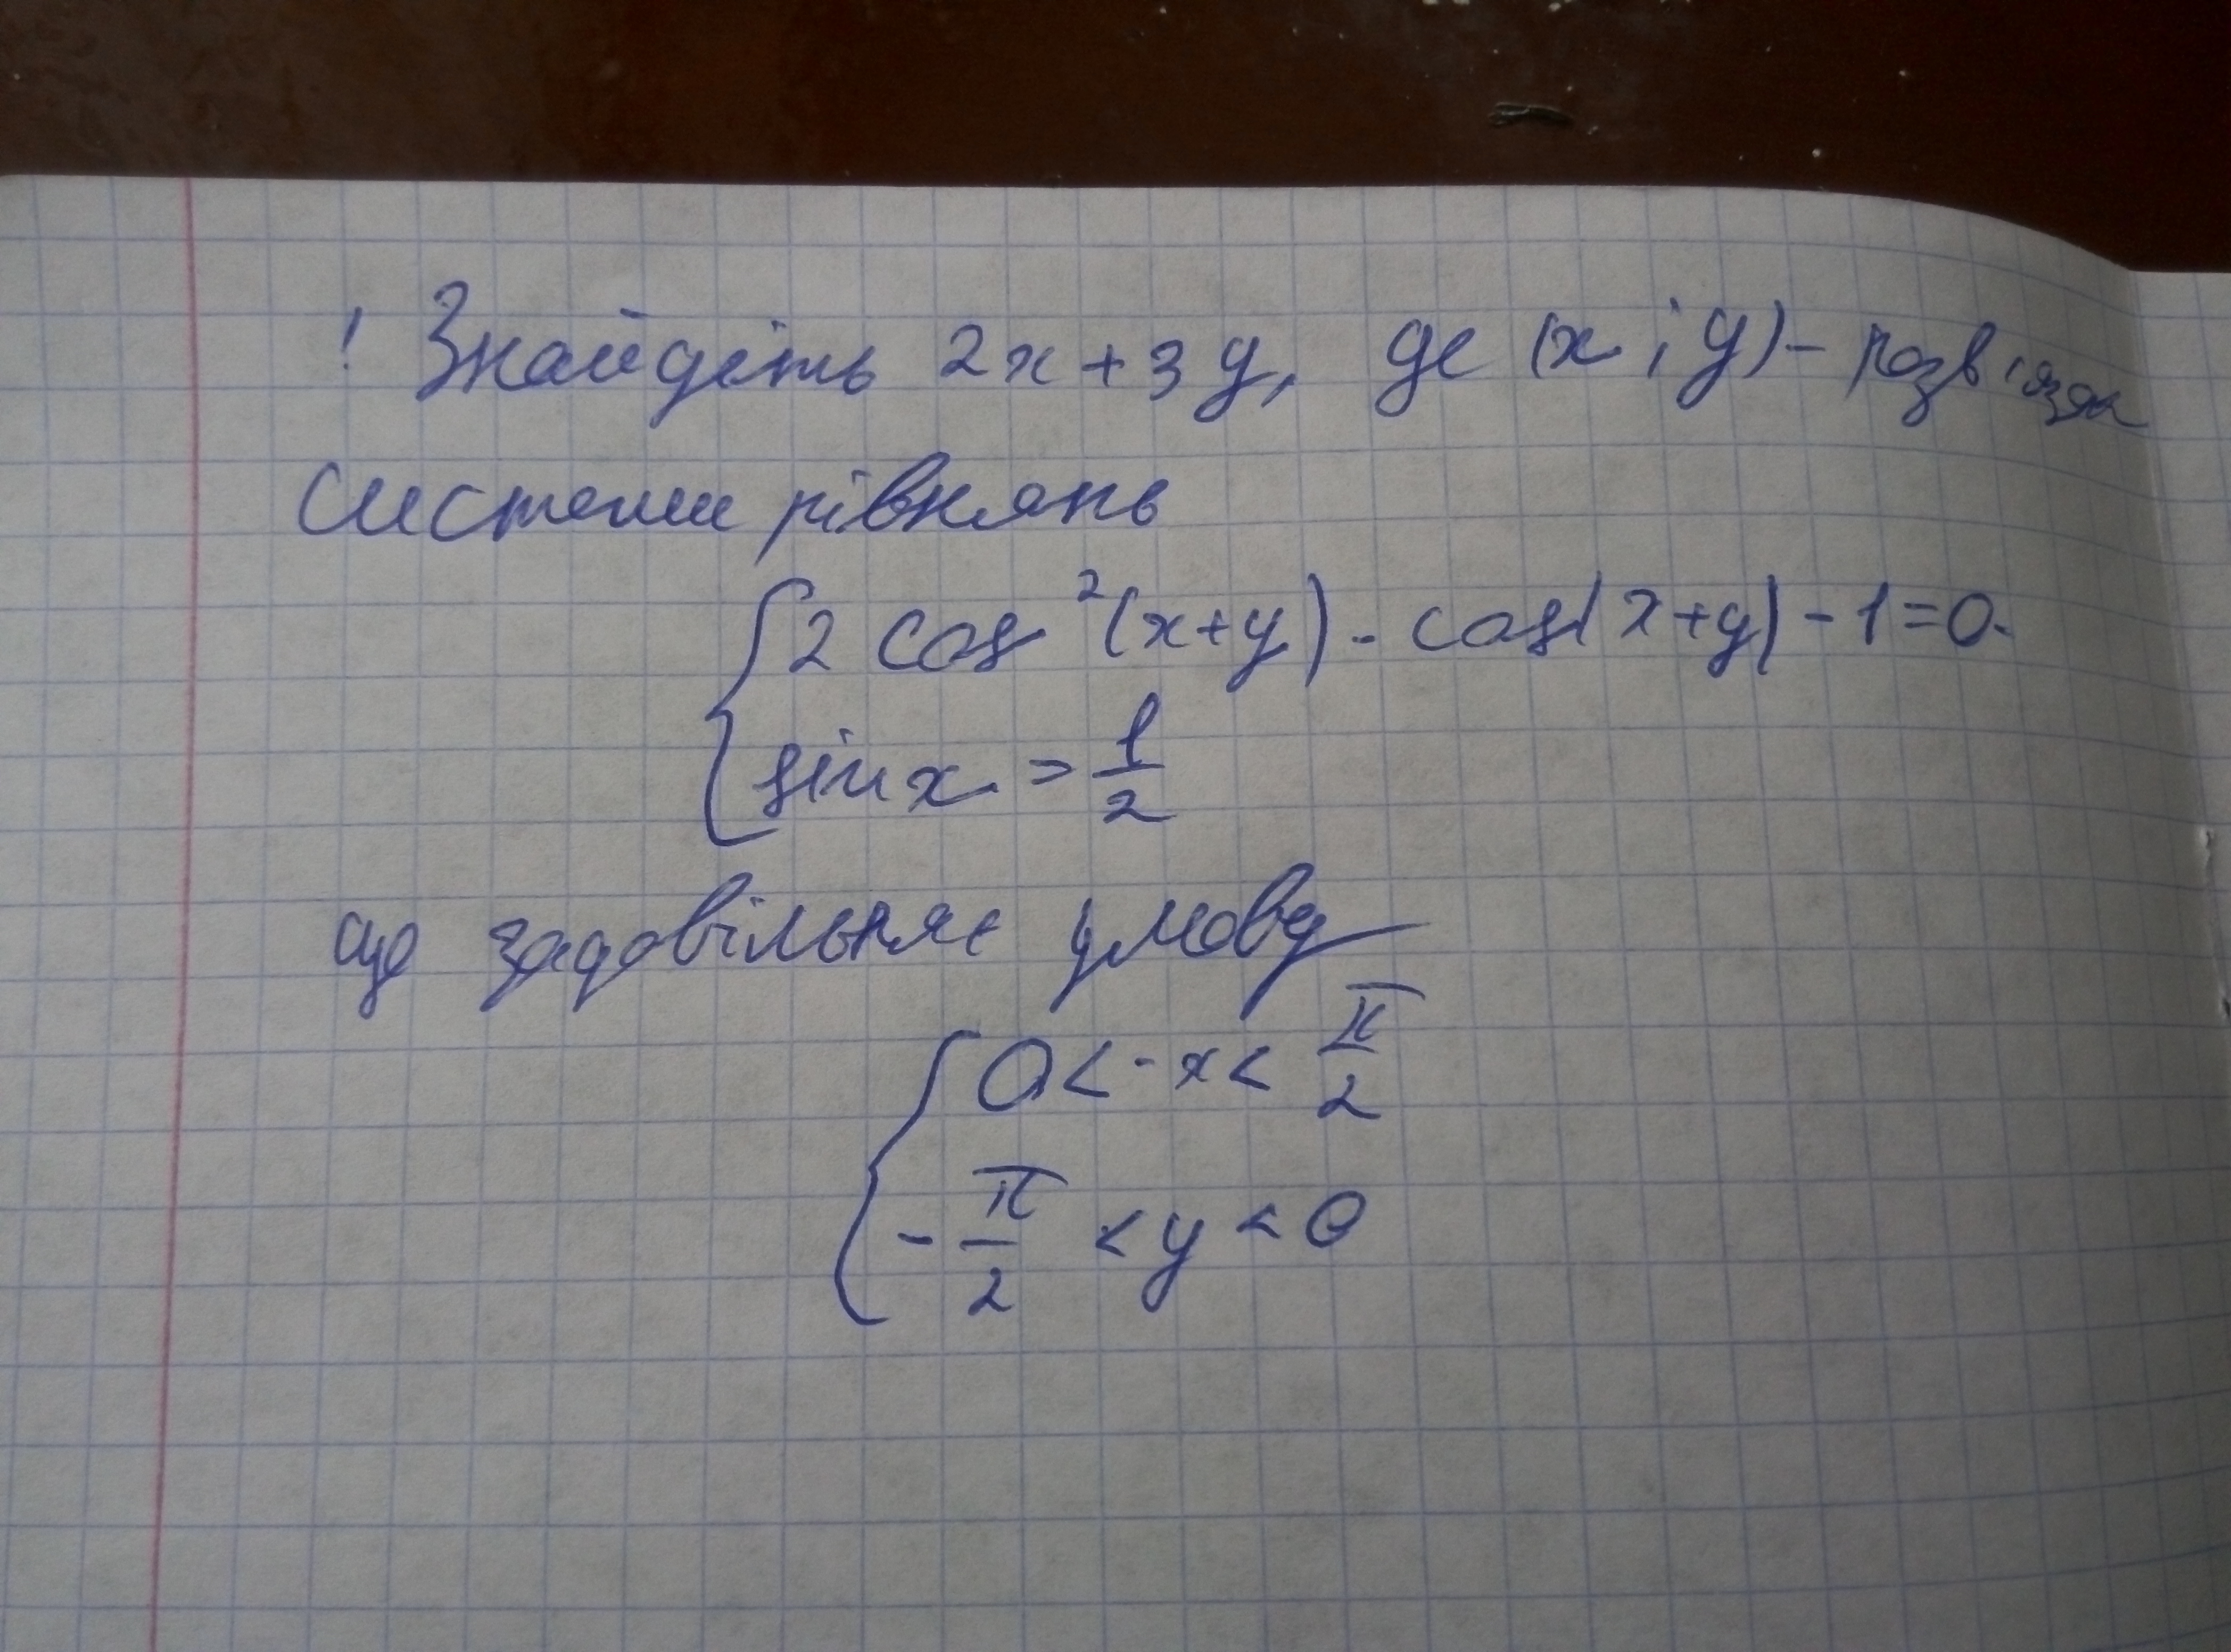 ! Знайдіть 2x + 3y, де (x ; y) - розв'язок
системи рівнянь
{ 2 cos²(x+y) - cos(x+y) - 1 = 0
sin x = 1/2
що задовільняє умову
{ 0 < x < π/2
- π/2 < y < 0